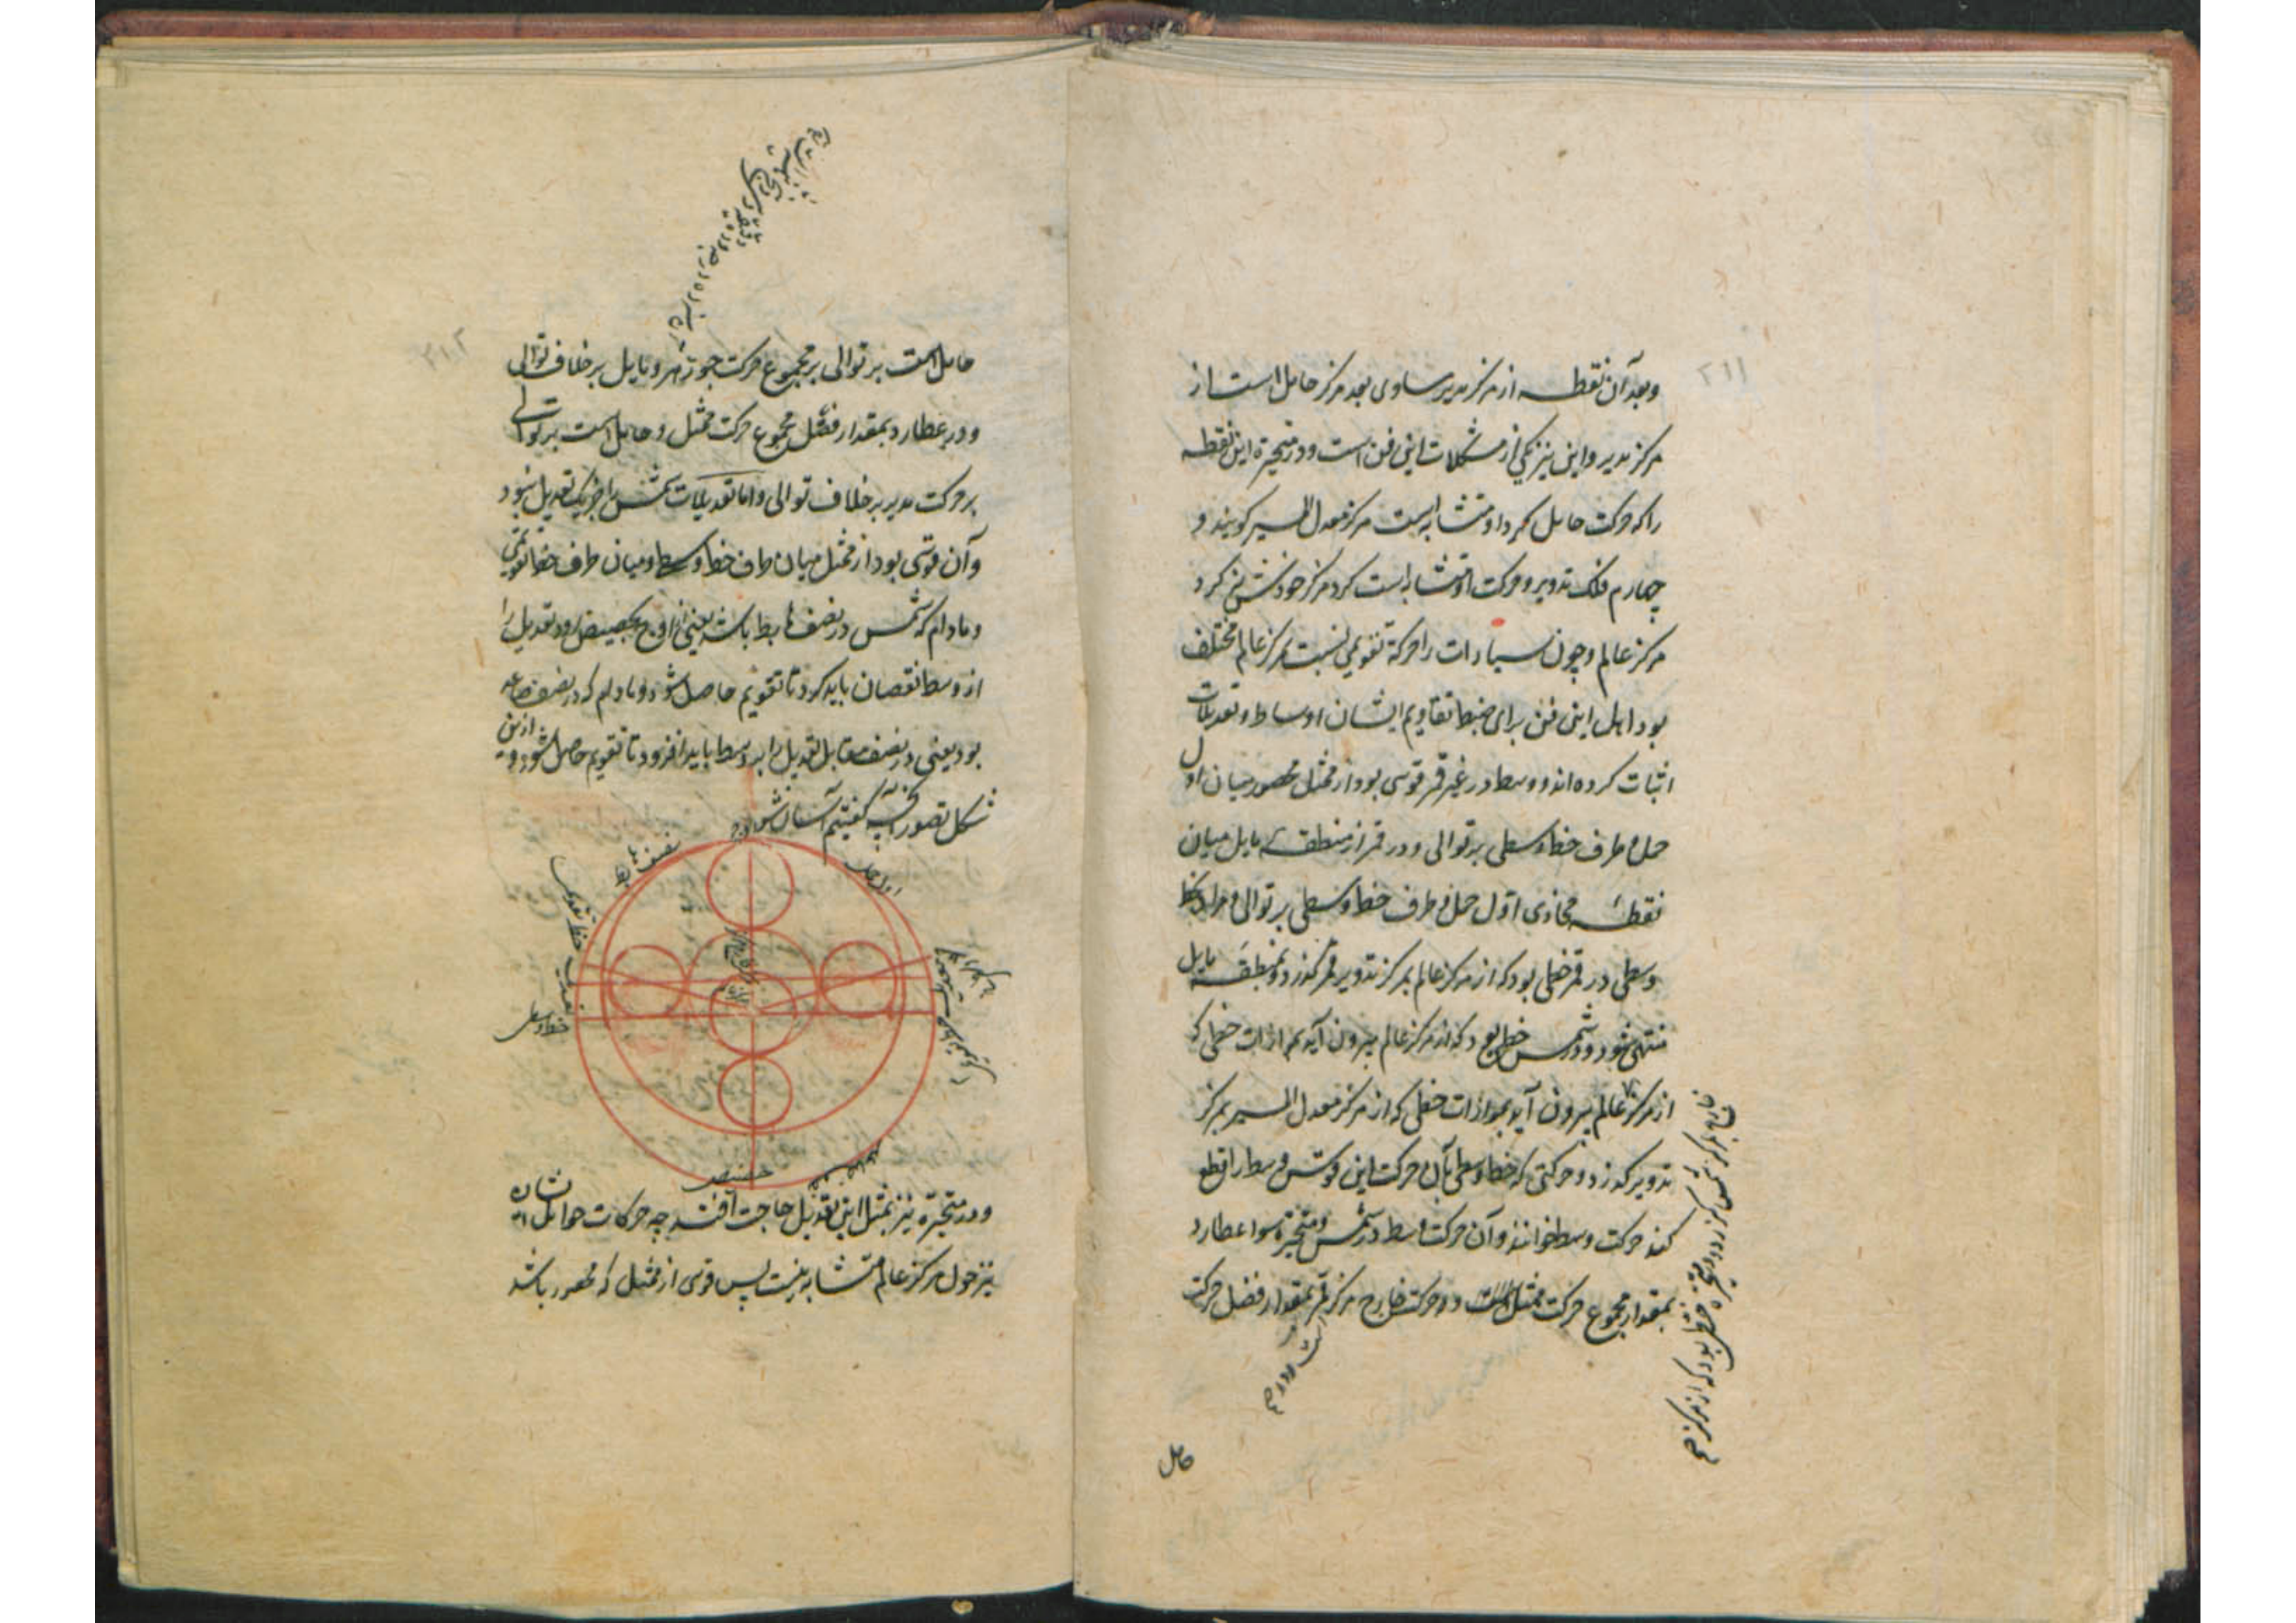 ۲۱۱
وبعد آن نقطه از مرکز مدیر مساوی بعد مرکز حامل است از
مرکز مدیر و این نیز یکی از مشکلات این فن است و در متحیره این نقطه
را که حرکت حامل کرد او متشابه است مرکز معدل المسیر کویند و
چهارم فلک تدویر و حرکت او متشابه است کرد مرکز خودش نه کرد
مرکز عالم و چون سیارات را حرکة تقویمی نسبت بمرکز عالم مختلف
بود اهل این فن برای ضبط تقاویم ایشان اوساط و تعدیلات
اثبات کرده اند و وسط در غیر قمر قوسی بود از ممثل محصور میان اول
حمل و طرف خط وسطی بر توالی و در قمر از منطقهٔ مایل میان
نقطهٔ محاذی اول حمل و طرف خط وسطی بر توالی و مراد بخط
وسطی در قمر خطی بود که از مرکز عالم بمرکز تدویر قمر کذرد و بمنطقهٔ مایل
منتهی شود و در شمس خطی بود که از مرکز عالم بیرون آید بموازات خطی که
از مرکز عالم بیرون آید بموازات خطی که از مرکز معدل المسیر بمرکز
تدویر کذرد و حرکتی که خط وسطی بآن حرکت این قوس وسط را قطع
کند حرکت وسط خوانند و آن حرکت وسط در شمس و متحیره سوا عطارد
بمقدار مجموع حرکت ممثل است و در قمر بمقدار فضل حرکت
خارج مرکز شمس کذرد و در متحیره خطی بود که از مرکز
حامل
۲۱۲
حامل است بر توالی بر مجموع حرکت جوزهر و مایل بر خلاف توالی
و در عطارد بمقدار فضل مجموع حرکت ممثل و حامل است بر توالی
بر حرکت مدیر بر خلاف توالی و اما تعدیلات شمس را جز یک تعدیل نبود
و آن قوسی بود از ممثل میان طرف خط وسطی و میان طرف خط تقویمی
و مادام که شمس در نصف هابط باشد یعنی از اوج بحضیض رود تعدیل را
از وسط نقصان باید کرد تا تقویم حاصل شود و مادام که در نصف صاعد
بود یعنی در نصف مقابل تعدیل را بر وسط باید افزود تا تقویم حاصل شود و ازین
شکل تصور آنچه کفتیم آسان شود
نصف هابط
خط تقویمی
تعدیل
خط وسطی
مرکز عالم
حضیض
نصف صاعد
و در متحیره نیز بمثل این تعدیل حاجت افتد چه حرکات حوامل ایشان
نیز حول مرکز عالم متشابه نیست پس قوسی از ممثل که محصور باشد